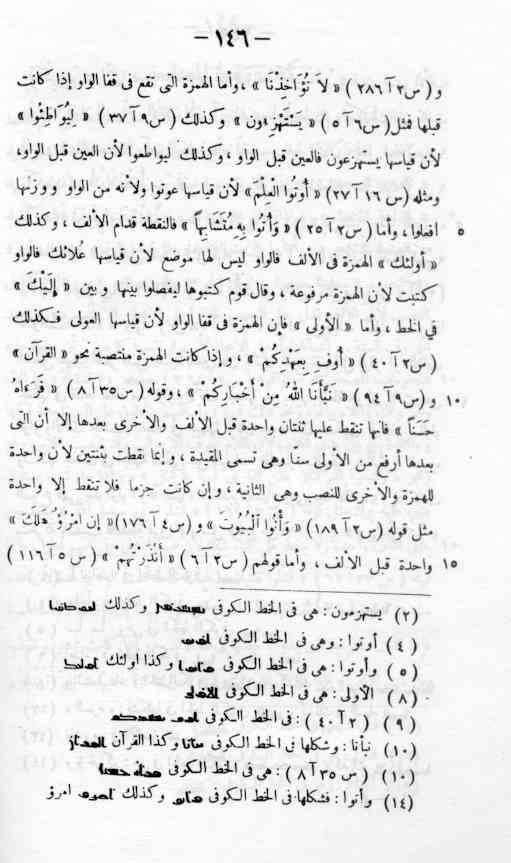 — ١٤٦ —
و (س٢ آ ٢٨٦) « لاَ تُؤَاخِذْنَا » ، وأما الهمزة التى تقع فى قفا الواو إذا كانت
قبلها فمثل (س٦ آ ٥) « يَسْتَهْزِءون » وكذلك (س٩ آ ٣٧) « لِيُوَاطِئُوا »
لأن قياسها يستهزعون فالعين قبل الواو ، وكذلك ليواطعوا لأن العين قبل الواو،
ومثله (س ١٦ آ ٢٧) « أُوتُوا الْعِلْمَ » لأن قياسها عوتوا ولأنه من الواو ووزنها
٥ افعلوا ، وأما (س٢ آ ٢٥) « وَأُتُوا بِهِ مُتَشَابِهاً » فالنقطة قدام الألف ، وكذلك
« أولئك » الهمزة فى الألف فالواو ليس لها موضع لأن قياسها عُلائك فالواو
كتبت لأن الهمزة مرفوعة ، وقال قوم كتبوها ليفصلوا بينها وبين « إِلَيْكَ »
في الخط ، وأما « الأولى » فإن الهمزة فى قفا الواو لأن قياسها العولى فكذلك
(س٢ آ ٤٠) « أُوفِ بِعَهْدِكُمْ » ، وإذا كانت الهمزة منتصبة نحو « القرآن »
١٠ و (س٩ آ ٩٤) « نَبَّأَنَا اللهُ مِنْ أَخْبَارِكُمْ » ، وقوله (س٣٥ آ ٨) « فَرَءَاهُ
حَسَناً » فانها تنقط عليها ثنتان واحدة قبل الألف والأخرى بعدها إلا أن التى
بعدها أرفع من الأولى سنًا وهى تسمى المقيدة ، وإنما نقطت بثنتين لأن واحدة
للهمزة والأخرى للنصب وهى الثانية ، وإن كانت جزما فلا تنقط إلا واحدة
مثل قوله (س٢ آ ١٨٩) « وَأْتُوا الْبُيُوتَ » و (س٤ آ ١٧٦) « إن امْرُؤٌ هَلَكَ »
١٥ واحدة قبل الألف ، وأما قولهم (س٢ آ ٦) « أَنْذَرْتَهُمْ » (س ٥ آ ١١٦)
(٢) يستهزمون : هى فى الخط الكوفى وكذلك
(٤) أوتوا : وهى فى الخط الكوفى
(٥) وأوتوا : هى فى الخط الكوفى وكذا اولئك
(٨) الأولى : هى فى الخط الكوفى
(٩) (٢ آ ٤٠) : فى الخط الكوفى
(١٠) نبأنا : وشكلها فى الخط الكوفى وكذا القرآن
(١٠) (س ٣٥ آ ٨) : هى فى الخط الكوفى
(١٤) وأتوا : فشكلها فى الخط الكوفى وكذلك امرؤ